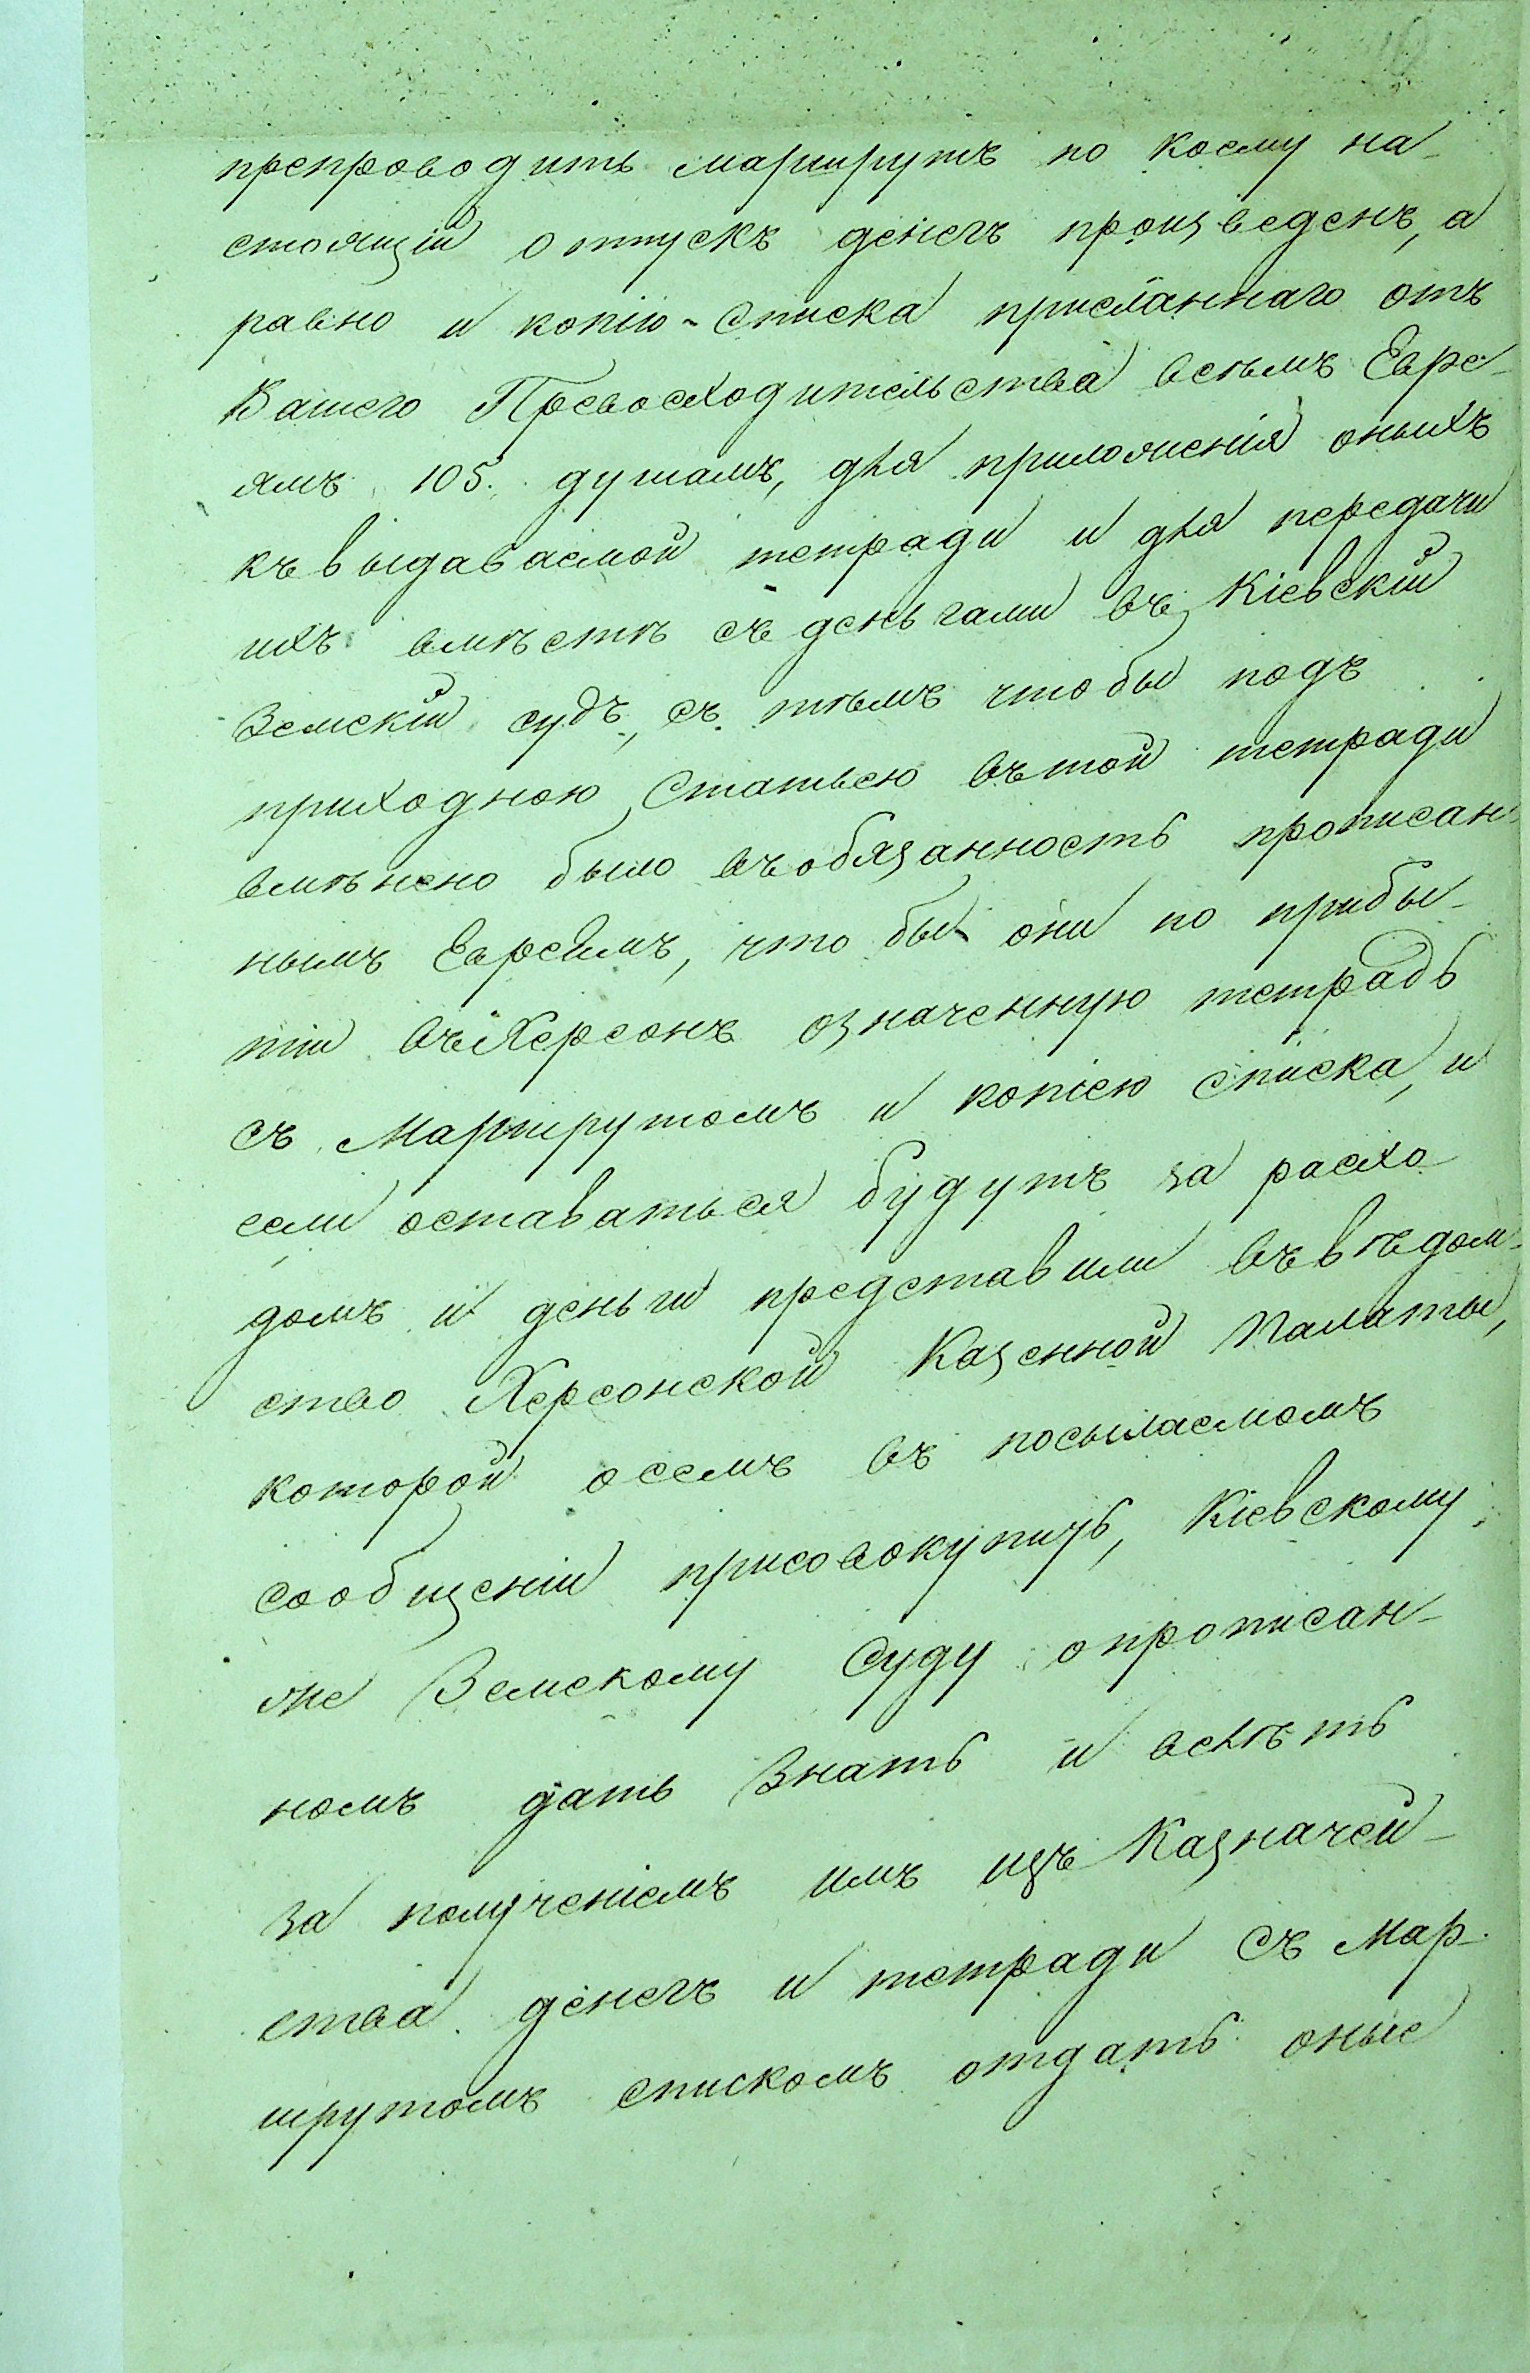 препроводить маршрутъ по коему на-
стоящій отпускъ денегъ произведенъ, а
равно и копію списка присланнаго отъ
Вашего Превосходительства всѣмъ Евре-
ямъ 105. душамъ, для приложенія оныхъ
къ выдаваемой тетради и для передачи
ихъ вмѣстѣ съ деньгами въ Кіевскій
Земскій судъ, съ тѣмъ чтобы подъ
приходною Статьею въ той тетради
вмѣнено было въ обязанность прописан-
нымъ Евреямъ, что бы они по прибы-
тіи въ Херсонъ означенную тетрадь
съ Маршрутомъ и копіею списка, и
если оставаться будутъ за расхо-
домъ и деньги представили въ вѣдом-
ство Херсонской Казенной Палаты,
которой осемъ въ посылаемомъ
сообщеніи присовокупить, Кіевскому
же Земскому Суду о прописан-
номъ дать знать и велѣть
за полученіемъ имъ изъ Казначей-
ства денегъ и тетради съ Мар-
шрутомъ спискомъ отдать оные